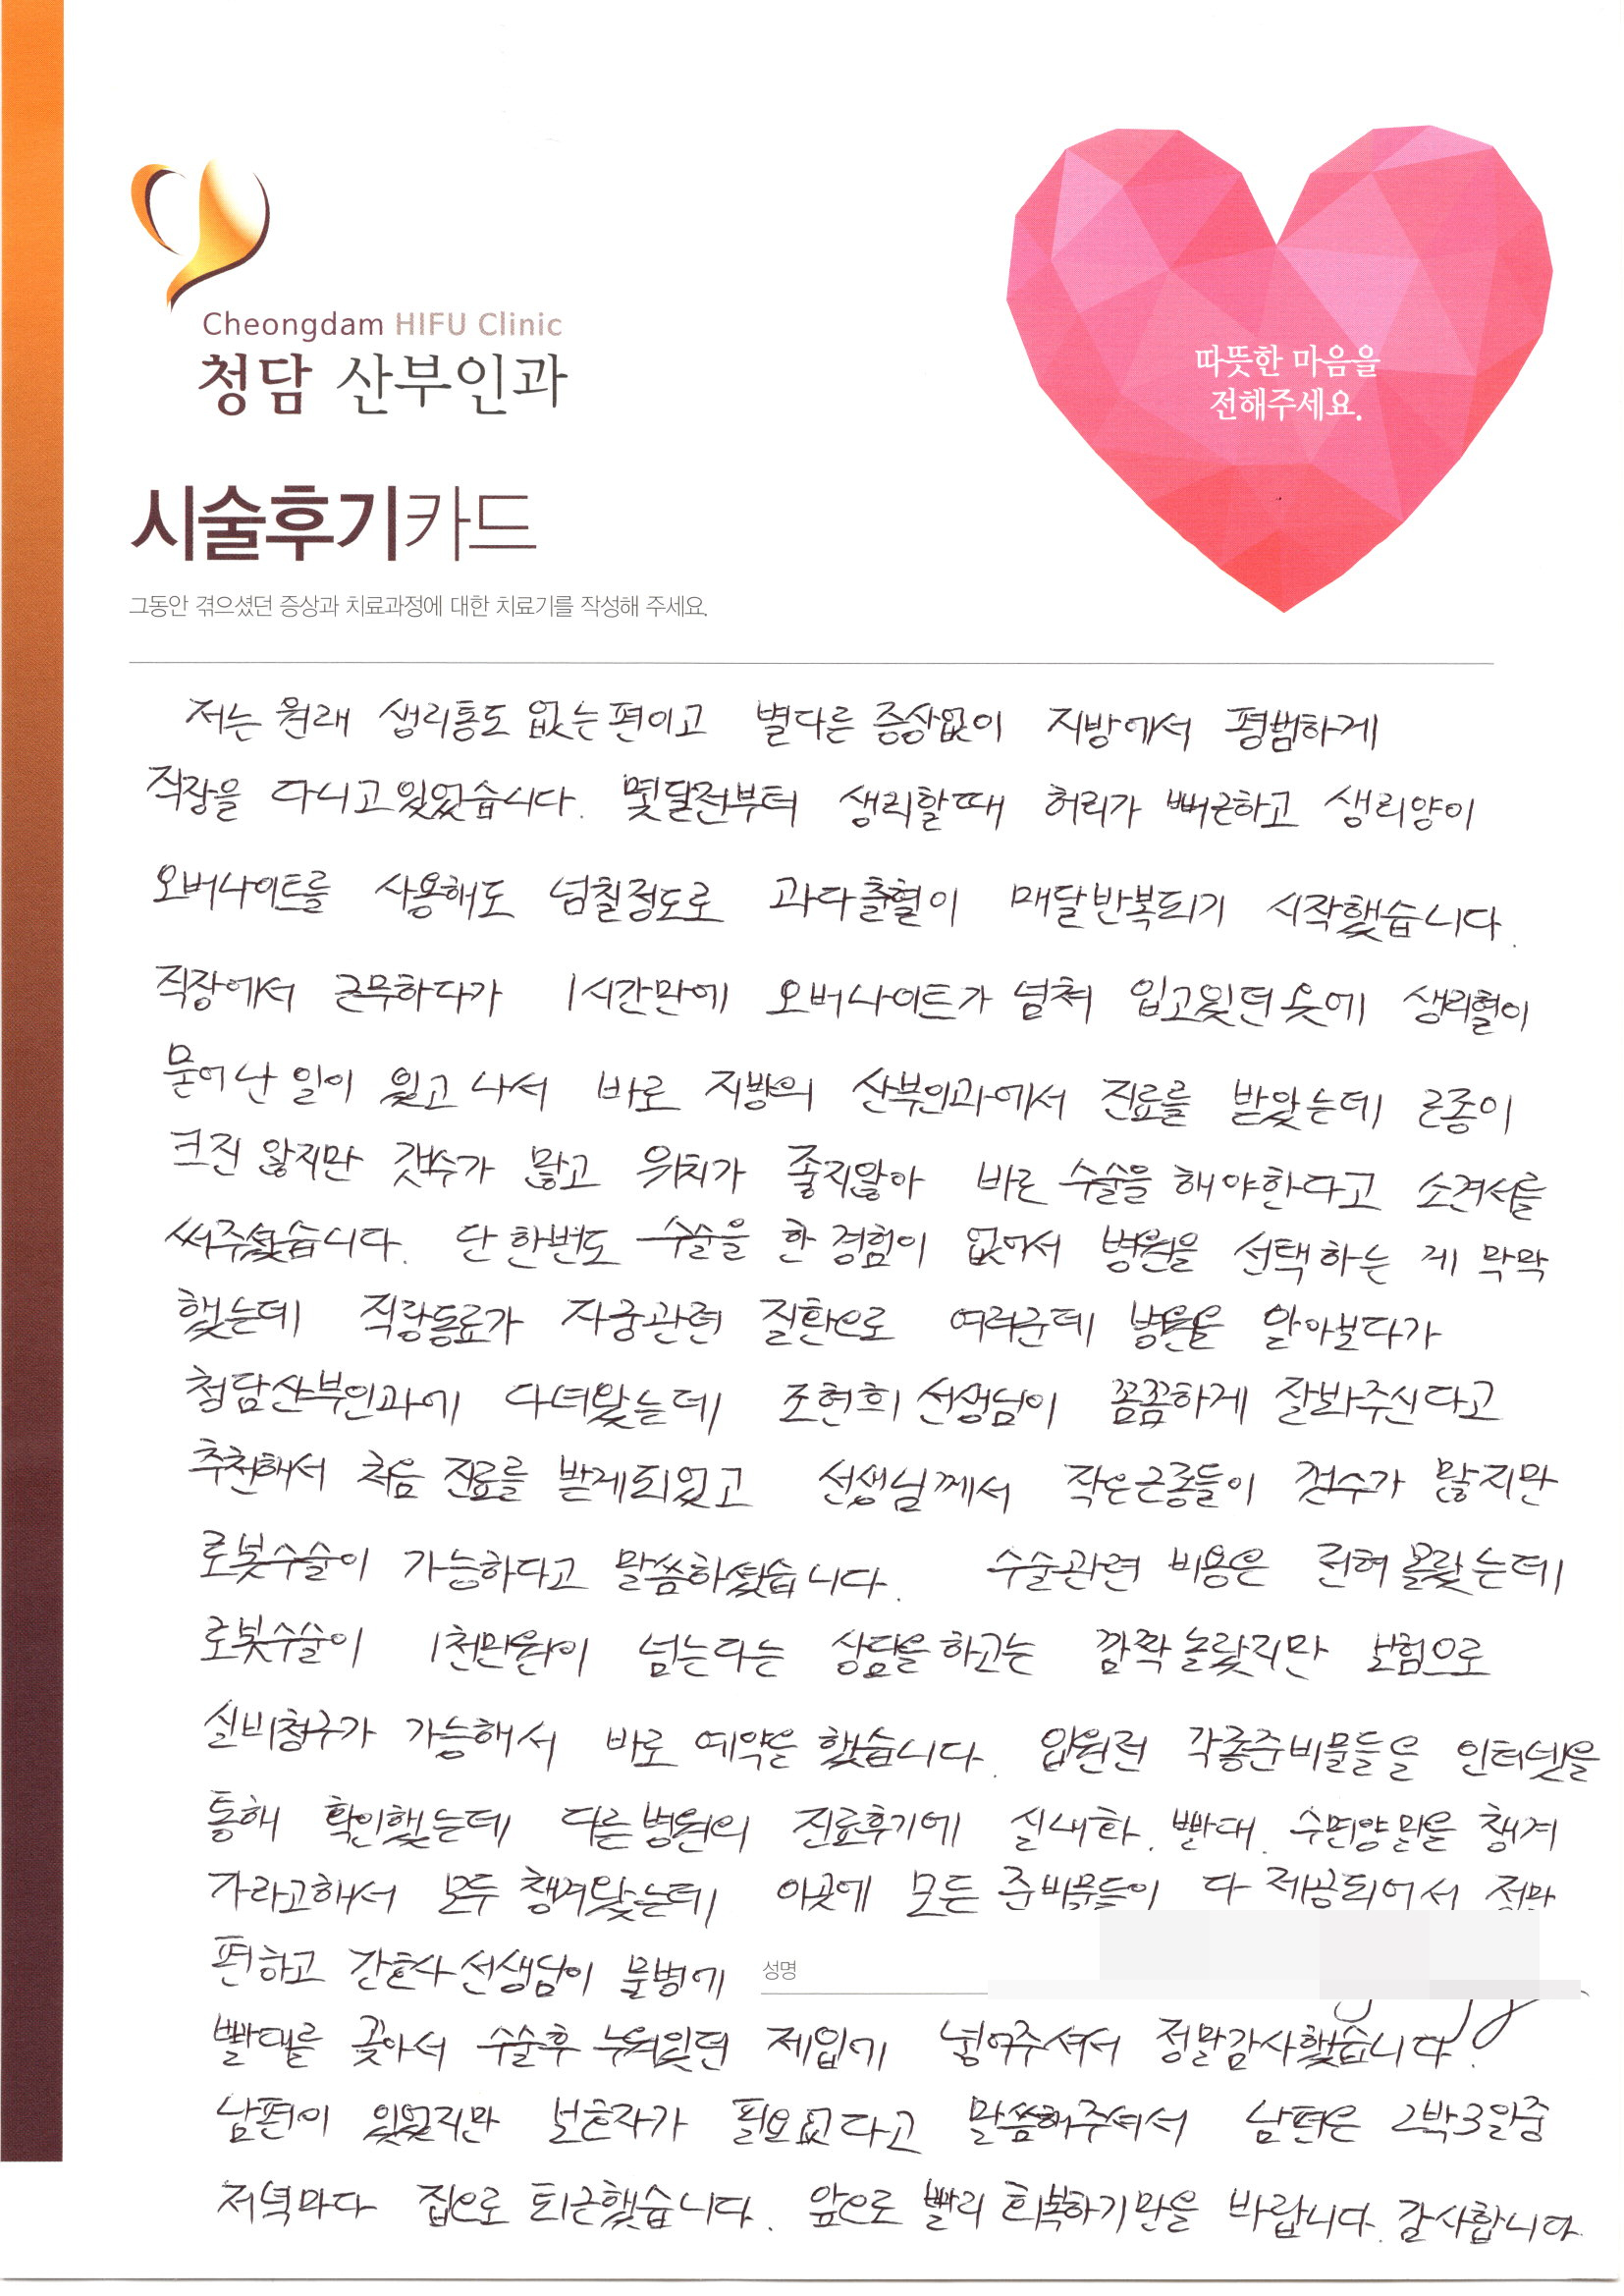 Cheongdam HIFU Clinic
청담 산부인과
따뜻한 마음을
전해주세요.
시술후기카드
그동안 겪으셨던 증상과 치료과정에 대한 치료기를 작성해 주세요.
저는 원래 생리통도 없는편이고 별다른 증상없이 지방에서 평범하게
직장을 다니고있었습니다. 몇달전부터 생리할때 허리가 뻐근하고 생리양이
오버나이트를 사용해도 넘칠정도로 과다출혈이 매달반복되기 시작했습니다.
직장에서 근무하다가 1시간만에 오버나이트가 넘쳐 입고있던 옷에 생리혈이
묻어난 일이 있고나서 바로 지방의 산부인과에서 진료를 받았는데 근종이
크진 않지만 갯수가 많고 위치가 좋지않아 바로 수술을 해야한다고 소견서를
써주셨습니다. 단한번도 수술을 한 경험이 없어서 병원을 선택하는 게 막막
했는데 직장동료가 자궁관련 질환으로 여러군데 병원을 알아보다가
청담산부인과에 다녀왔는데 조현희 선생님이 꼼꼼하게 잘봐주신다고
추천해서 처음 진료를 받게되었고 선생님께서 작은근종들이 갯수가 많지만
로봇수술이 가능하다고 말씀하셨습니다. 수술관련 비용은 전혀 몰랐는데
로봇수술이 1천만원이 넘는다는 상담을 하고는 깜짝 놀랐지만 보험으로
실비청구가 가능해서 바로 예약을 했습니다. 입원전 각종준비물들을 인터넷을
통해 확인했는데 다른병원의 진료후기에 실내화, 빨대, 수면양말을 챙겨
가라고해서 모두 챙겨왔는데 이곳에 모든 준비물들이 다 제공되어서 정말
편하고 간호사선생님이 물병에
성명
빨대를 꽂아서 수술후 누워있던 제입에 넣어주셔서 정말감사했습니다.
남편이 있었지만 보호자가 필요없다고 말씀해주셔서 남편은 2박3일중
저녁마다 집으로 퇴근했습니다. 앞으로 빨리 회복하기만을 바랍니다. 감사합니다